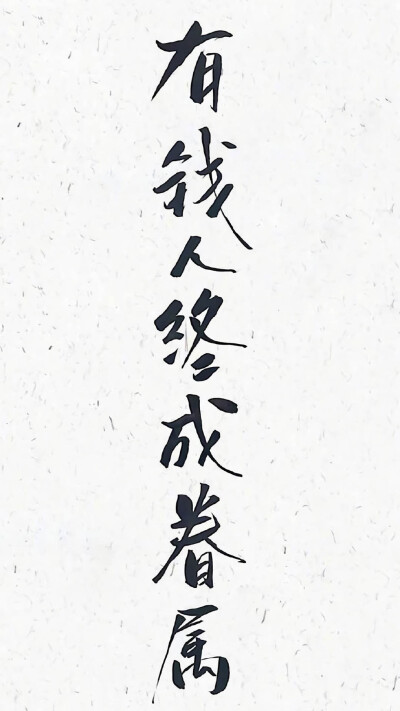 有钱人终成眷属